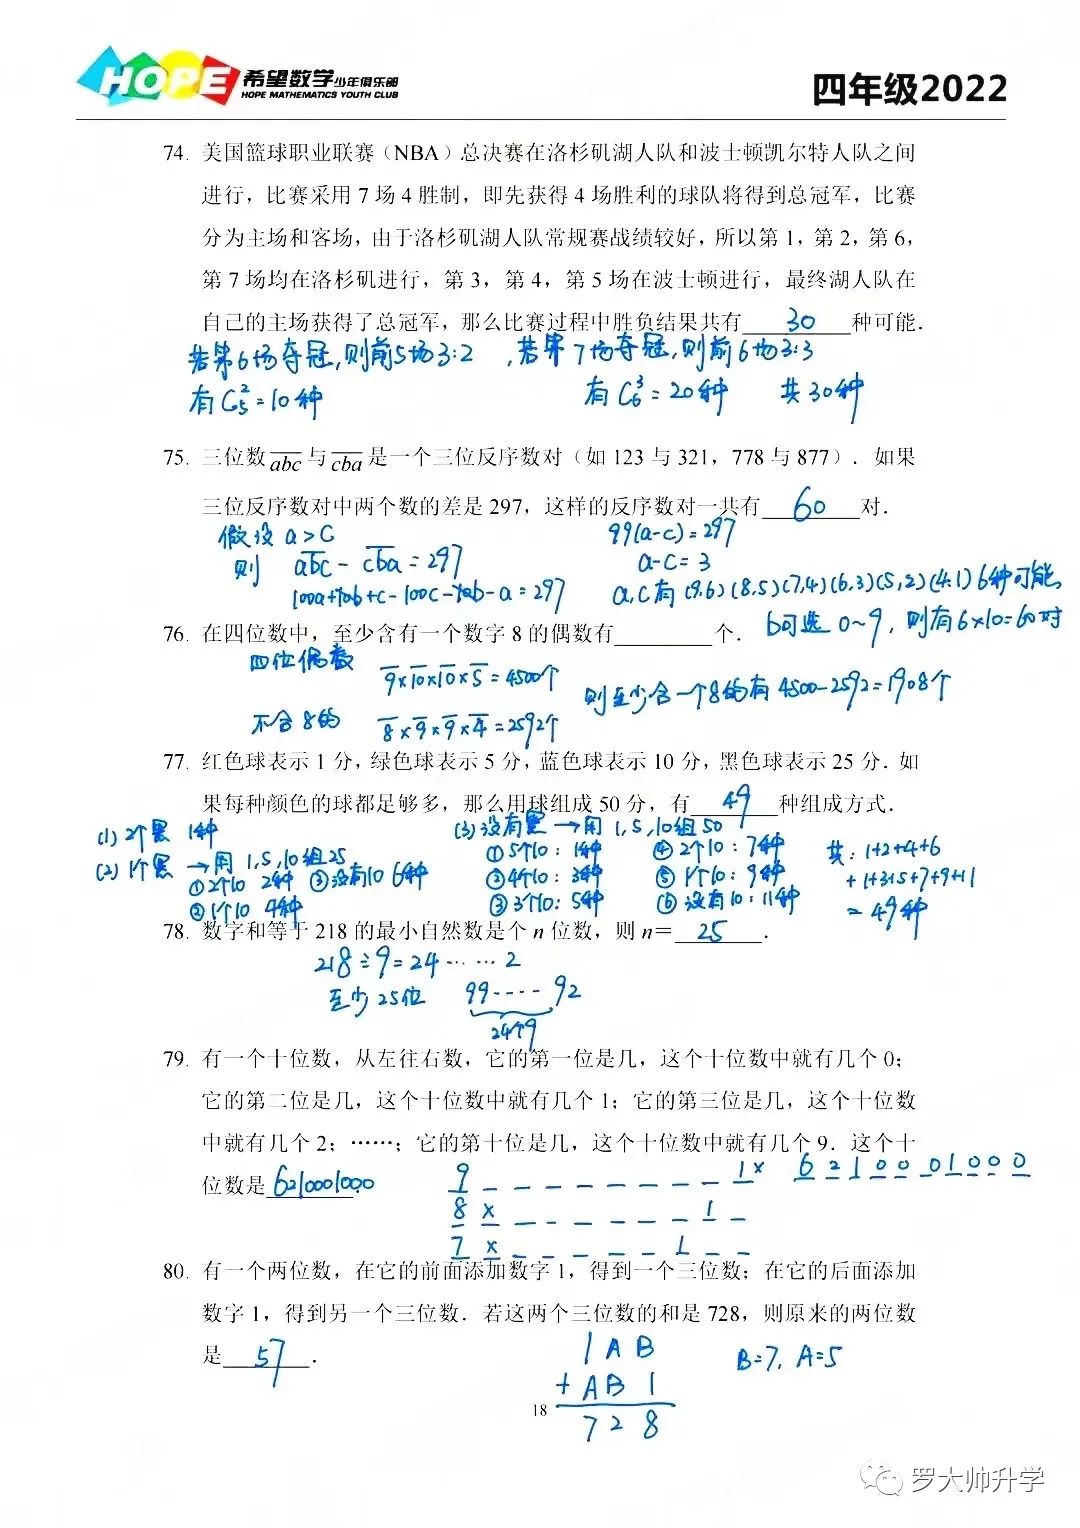 HOPE 希望数学少年俱乐部
HOPE MATHEMATICS YOUTH CLUB
四年级2022
74. 美国篮球职业联赛（NBA）总决赛在洛杉矶湖人队和波士顿凯尔特人队之间
进行，比赛采用 7 场 4 胜制，即先获得 4 场胜利的球队将得到总冠军，比赛
分为主场和客场，由于洛杉矶湖人队常规赛战绩较好，所以第 1，第 2，第 6，
第 7 场均在洛杉矶进行，第 3，第 4，第 5 场在波士顿进行，最终湖人队在
自己的主场获得了总冠军，那么比赛过程中胜负结果共有 30 种可能．
若第6场夺冠，则前5场3:2 ，若第7场夺冠，则前6场3:3
有C₅²=10种 有C₆³=20种 共30种
75. 三位数abc与cba是一个三位反序数对（如 123 与 321，778 与 877）．如果
三位反序数对中两个数的差是 297，这样的反序数对一共有 60 对．
假设 a>c 99(a-c)=297
则 abc - cba = 297 a-c=3
100a+10b+c-100c-10b-a=297 a,c有(9,6)(8,5)(7,4)(6,3)(5,2)(4,1)6种可能,
76. 在四位数中，至少含有一个数字 8 的偶数有 个． b可选 0~9，则有6×10=60对
四位偶数 9×10×10×5=4500个
则至少含一个8的有 4500-2592=1908个
不含8的 8×9×9×4=2592个
77. 红色球表示 1 分，绿色球表示 5 分，蓝色球表示 10 分，黑色球表示 25 分．如
果每种颜色的球都足够多，那么用球组成 50 分，有 49 种组成方式．
(1) 2个黑 1种 (3)没有黑→用1,5,10组50
(2) 1个黑→用1,5,10组25 ①5个10: 1种 ④2个10: 7种 共: 1+2+4+6
①2个10 2种 ③没有10 6种 ②4个10: 3种 ⑤1个10: 9种 +1+3+5+7+9+11
②1个10 4种 ③3个10: 5种 ⑥没有10: 11种 =49种
78. 数字和等于 218 的最小自然数是个 n 位数，则 n＝ 25 ．
218÷9=24……2
至少25位 99----92
24个9
79. 有一个十位数，从左往右数，它的第一位是几，这个十位数中就有几个 0；
它的第二位是几，这个十位数中就有几个 1；它的第三位是几，这个十位数
中就有几个 2；……；它的第十位是几，这个十位数中就有几个 9．这个十
位数是 6210001000 ． 9 _ _ _ _ _ _ _ _ 1 × 6 2 1 0 0 0 1 0 0 0
8 × _ _ _ _ _ _ 1 _
7 × _ _ _ _ _ 1 _ _
80. 有一个两位数，在它的前面添加数字 1，得到一个三位数；在它的后面添加
数字 1，得到另一个三位数．若这两个三位数的和是 728，则原来的两位数
是 57 ． 1 A B B=7, A=5
+ A B 1
7 2 8
18
罗大帅升学